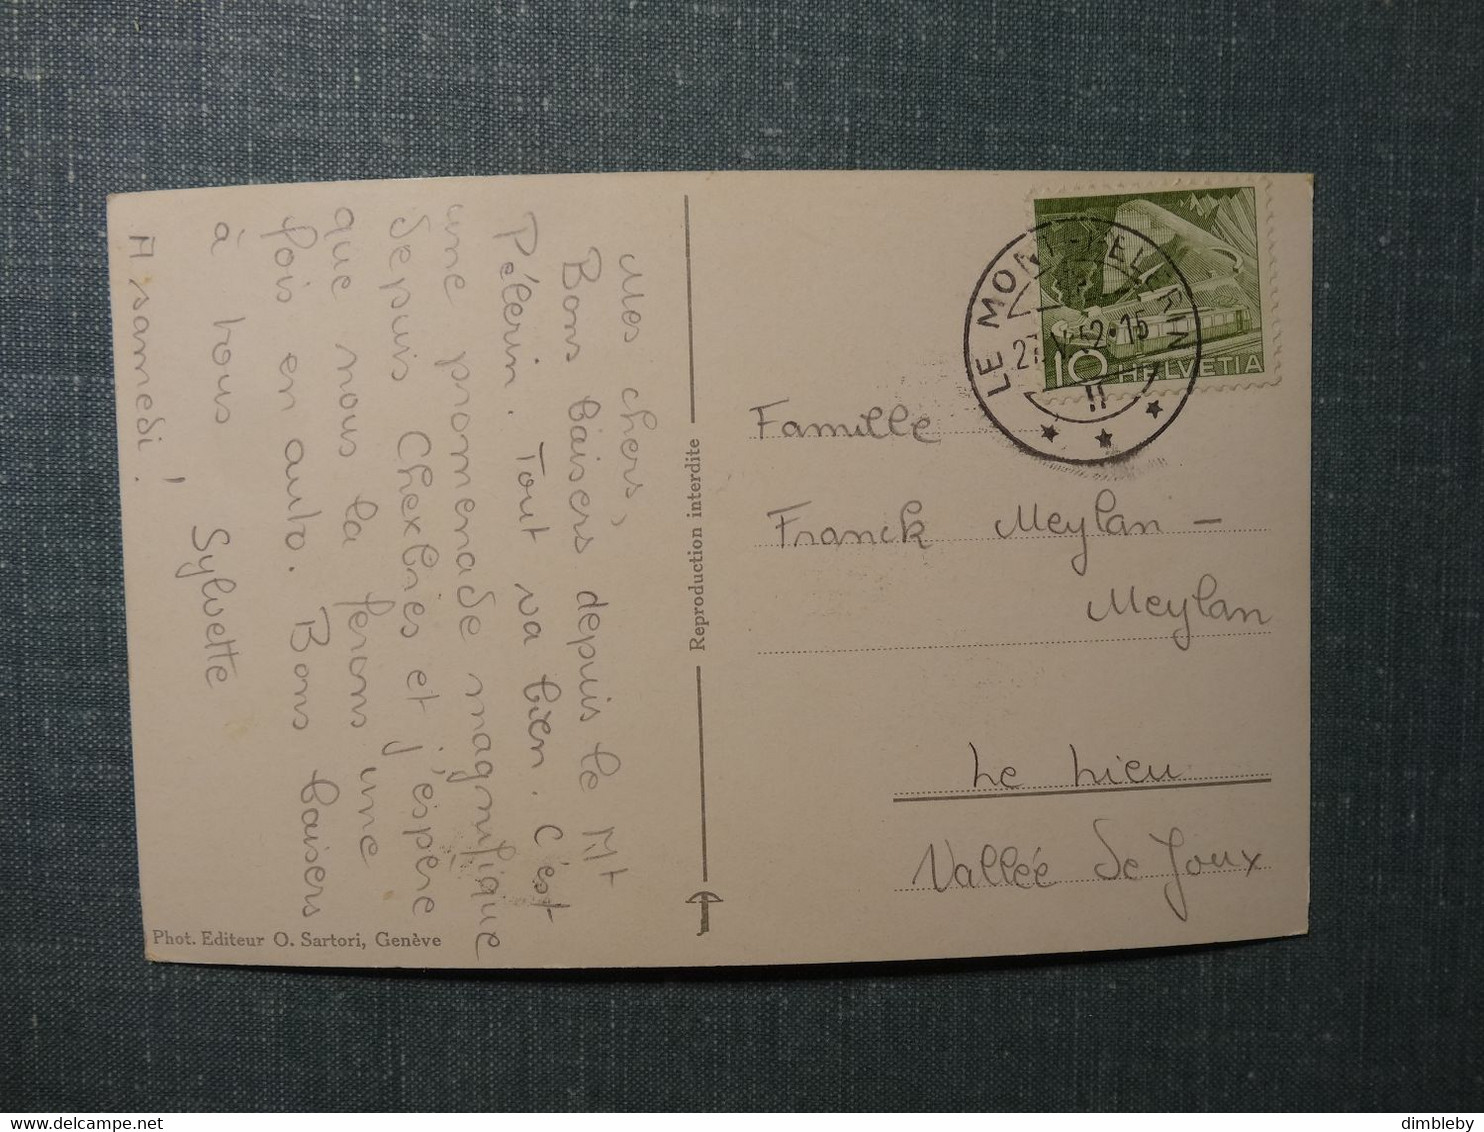 Mes chers,
Bons baisers depuis le Mt
Pélerin. Tout va bien. C'est
une promenade magnifique
depuis Chexbres et j'espère
que nous la ferons une
fois en auto. Bons baisers
à tous
Sylvette
A samedi!
Phot. Editeur O. Sartori, Genève
Reproduction interdite
LE MONT-PELERIN
52-15
10 HELVETIA
Famille
Franck Meylan -
Meylan
Le Lieu
Vallée de Joux
dimbleby